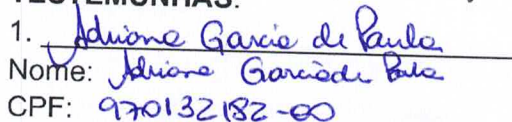 TESTEMUNHAS:
1. Adriana Garcia de Paula
Nome: Adriana Garcia de Paula
CPF: 970132182-00